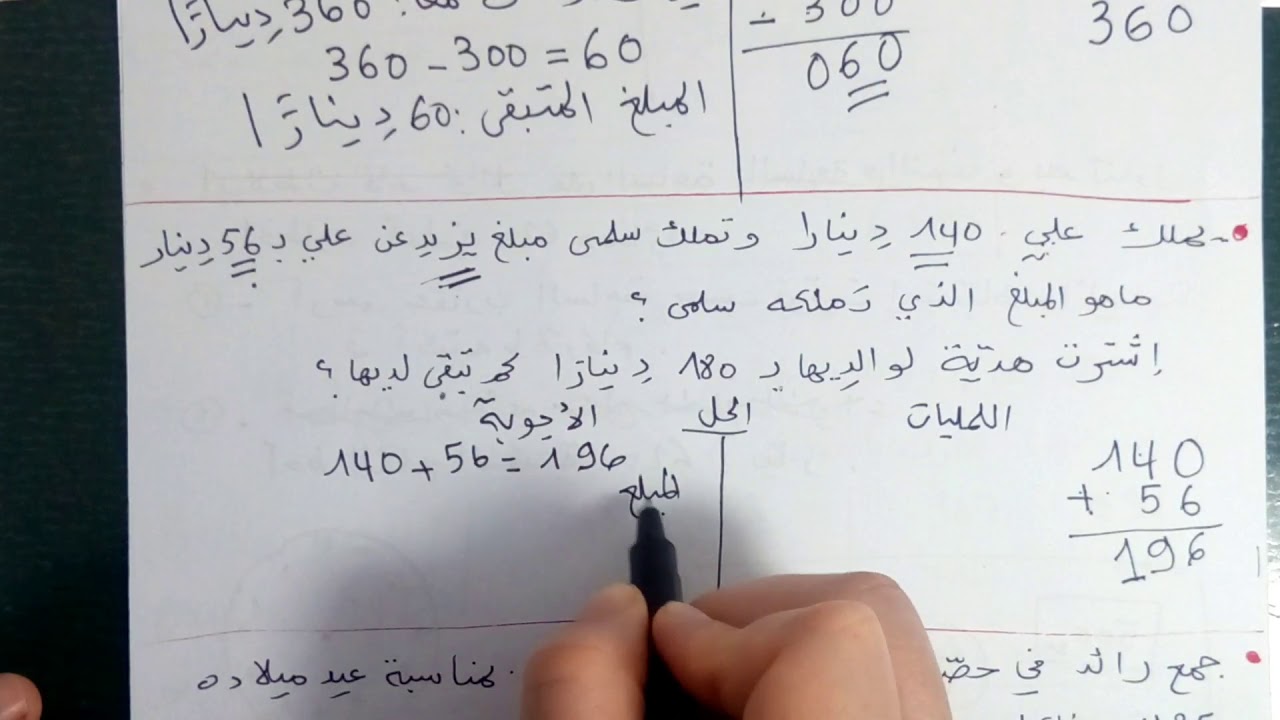 360 دِينارًا
360 - 300 = 60
المبلغ المتبقى: 60 دِينارًا
- 300
060
360
- يملك علي 140 دِينارا وتملك سلمى مبلغ يزيد عن علي بـ 56 دِينار
ماهو المبلغ الذي تَملكه سلمى ؟
اِشترت هديّة لوالديها بـ 180 دِينارًا كم تبقى لديها ؟
الحل
العمليات
140
+ 56
196
الأجوبة
140 + 56 = 196
المبلغ
جمع رائد في حصّ
بمناسبة عيد ميلاده